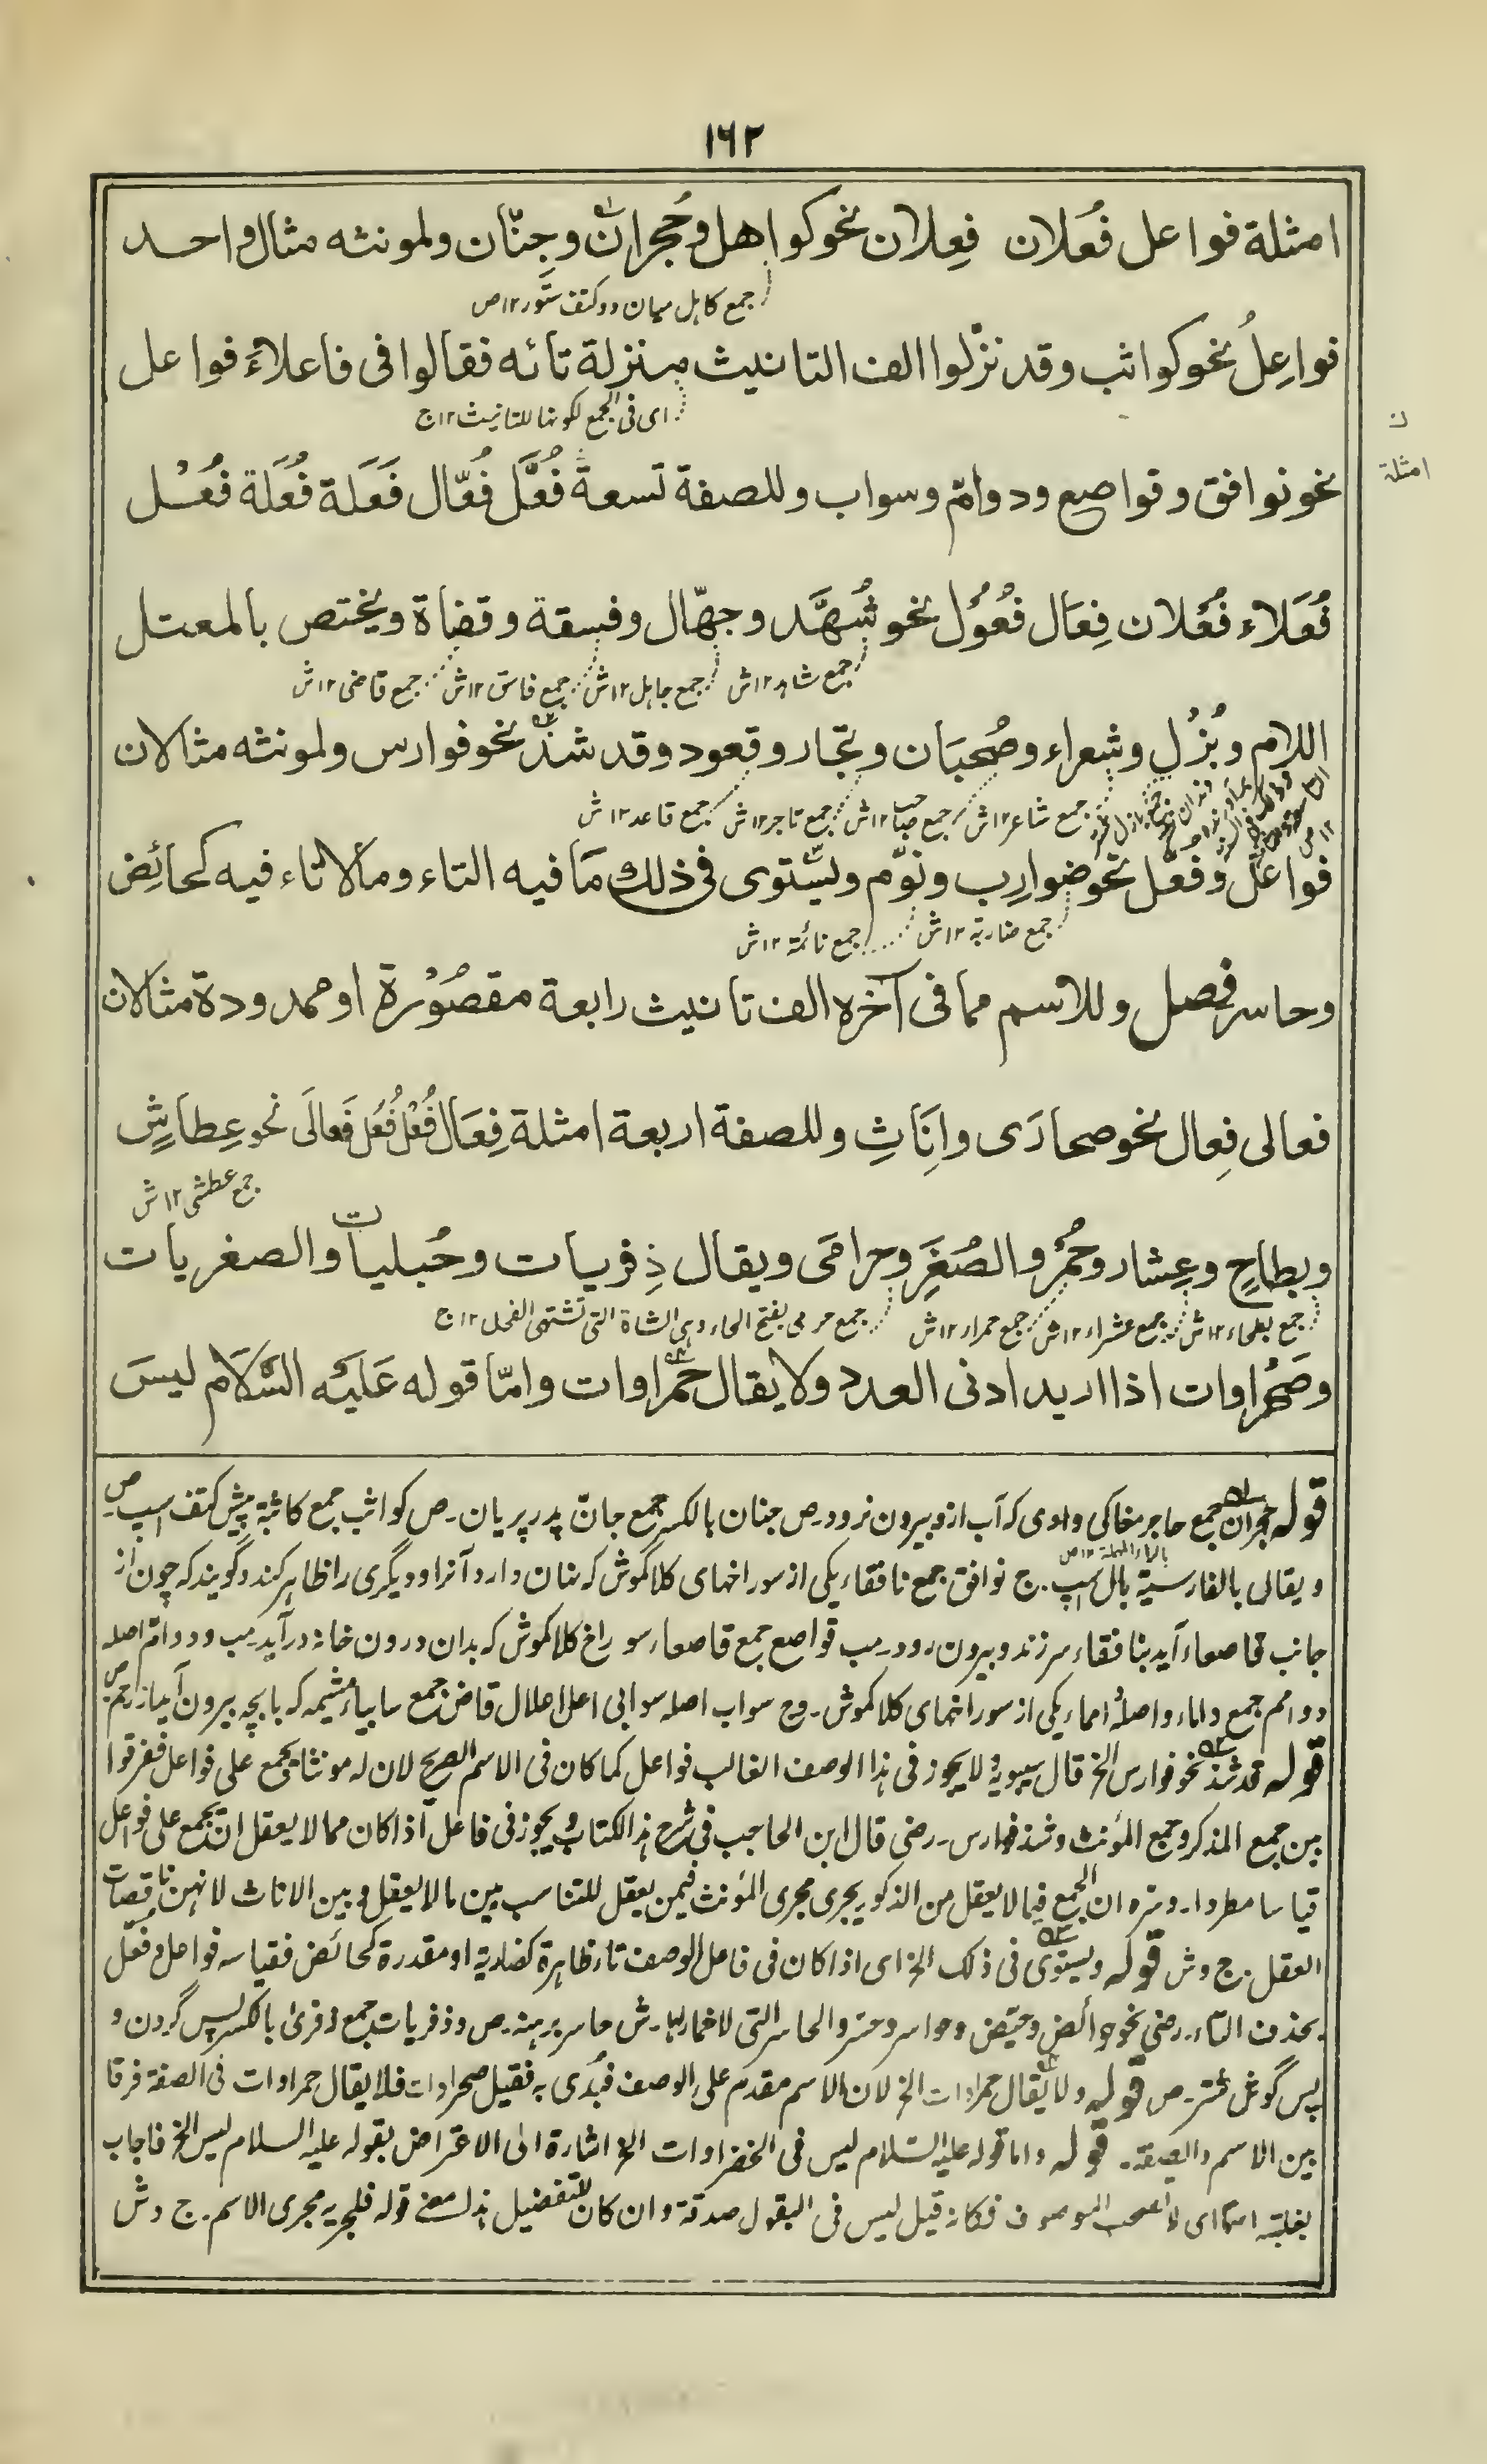 ١٦٢
امثلة فواعل فُعلان فِعلان نحو كواهل وحُجران وجِنّان ولمونثه مثال واحد
جمع كاهل ميان دو كتف ستور ١٢ ص
فواعِلُ نحو كواثب وقد نزّلوا الف التانيث منزلة تائه فقالوا فى فاعلاءَ فواعل
اى فى الجمع لكونها للتانيث ١٢ ج
ن
امثلة
نحو نوافق وقواصع ودوامّ وسواب وللصفة تسعة فُعَّل فُعّال فَعَلة فُعَلَة فُعْل
فُعَلاء فُعْلان فِعَال فُعُوُل نحو شُهَّد وجهّال وفسقة وقضاة ويختص بالمعتل
جمع شاهد ١٢ ش جمع جاهل ١٢ ش جمع فاسق ١٢ ش جمع قاضى ١٢ ش
اللام وبُزْل وشعراء وصُحبَان وتجّار وقعود وقد شذّ نحو فوارس ولمونثه مثالان
جمع شاعر ١٢ ش جمع صاحب ١٢ ش جمع تاجر ١٢ ش جمع قاعد ١٢ ش
فواعلُ وفُعّل نحو ضوارِب ونوّم ويستوى فى ذلك مَا فيه التاء وما لا تاء فيه كحائِض
جمع ضاربة ١٢ ش جمع نائمة ١٢ ش
وحاسر فصل وللاسم مما فى آخره الف تانيث رابعة مقصُوْرة او ممدودة مثالان
فعالى فِعال نحو صحارَى وانَاثِ وللصفة اربعة امثلة فِعَال فُعْل فُعَل فَعالَى نحو عِطاشٍ
جمع عطشى ١٢ ش
وبطاحٍ وعِشار وحُمْر والصُغَر وحرامَى ويقال ذِفريات وحُبليات والصغريات
جمع بطحاء ١٢ ش جمع عشراء ١٢ ش جمع حمراء ١٢ ش جمع حرمى بفتح الحاء وهى الشاة التى تشتهى الفحل ١٢ ج
وصَحْراوات اذا اريد ادنى العدد ولا يقال حَمراوات وامّا قوله عَليَه السَّلَام ليسَ
قوله حجران جمع حاجر مغاكى وادى كه آب ازو بيرون نرود ـ ص جنان بالكسر جمع جانّ پدر پريان ـ ص كواثب جمع كاثبة پيش كتف اسپ ص ـ
بالراء المهملة ١٢ ص
ويقال بالفارسية يال اسپ ـ ج نوافق جمع نافقاء يكى از سوراخهاى كلاكموش كه پنهان دارد آنرا و ديگرى را ظاهر كند و گويند كه چون از
جانب قاصعاء آيد بنافقاء سرزند و بيرون رود ـ مب قواصع جمع قاصعاء سوراخ كلاكموش كه بدان درون خانه درآيد ـ مب ودوامّ اصله
دوامم جمع داماء واصله امماء يكى از سوراخهاى كلاكموش ـ وج سواب اصله سوابى اعل اعلال قاض جمع سابياء مشيمه كه با بچه بيرون آيد از رحم ص
قوله قد شذ نحو فوارس الخ قال سيبويه لا يجوز فى هذا الوصف الغالب فواعل كما كان فى الاسم الصريح لان له مونثا يجمع على فواعل ففرقوا
بين جمع المذكر وجمع المؤنث وشذ فوارس ـ رضى قال ابن الحاجب فى شرح هذا الكتاب ويجوز فى فاعل اذا كان مما لا يعقل ان يجمع على فواعل
قياسا مطردا ـ وسره ان الجمع فيما لا يعقل من الذكور يجرى مجرى المؤنث فيمن يعقل للتناسب بين ما لا يعقل وبين الاناث لانهن ناقصات
العقل ـ ج وش قوله ويستوى فى ذلك الخ اى اذا كان فى فاعل الوصف تاء ظاهرة كضاربة او مقدرة كحائض فقياسه فواعل وفعّل
بحذف التاء ـ رضى نحو حوائض وحيّض وحواسر وحسّر والحاسر التى لا خمار لها ـ ش حاسر برهنه ـ ص وذفريات جمع ذفرى بالكسر پس گردن و
پس گوش شتر ـ ص قوله ولا يقال حمراوات الخ لان الاسم مقدم على الوصف فبُدى به فقيل صحراوات فلا يقال حمراوات فى الصفة فرقا
بين الاسم والصفة ـ قوله واما قوله عليه السّلام ليس فى الخضراوات الخ اشارة الى الاعتراض بقوله عليه السلام ليس الخ فاجاب
بغلبته اسما اى لا يصحب الموصوف فكانه قيل ليس فى البقول صدقة وان كان للتفضيل هذا معنى قوله فلجريه مجرى الاسم ـ ج وش